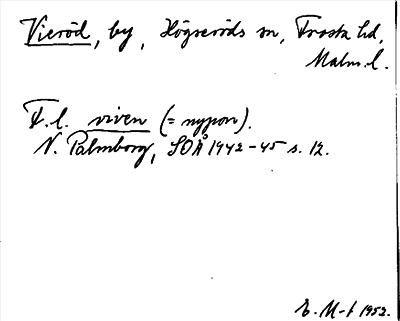 Vieröd, by, Högseröds sn, Frosta hd,
Malm.l.
F.l. viven (= nypon).
N. Palmborg, SOÅ 1942-45 s. 12.
E. M-t 1952.